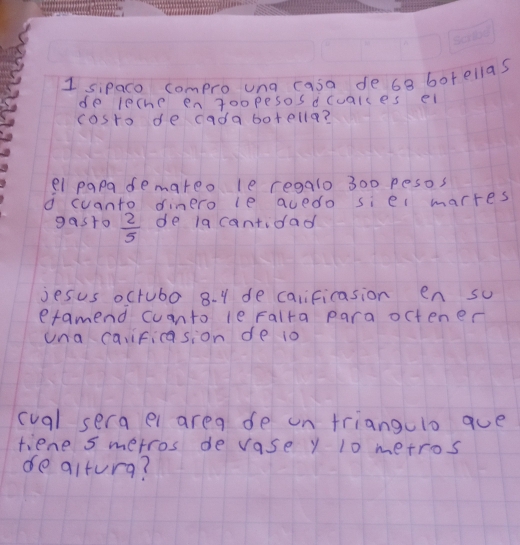 1 sipaco compro una caja de 68 botellas
de leche en 700 pesos ¿cualces el
costo de cada botella?
el papa de mateo le regalo 300 pesos
¿ cuanto dinero le quedo si el martes
gasto 2/5 de la cantidad
jesus octubo 8.4 de calificasion en su
examend cuanto le falta para octener
una calificasion de 10
cual sera el area de un triangulo que
tiene 5 metros de vase y 10 metros
de altura?